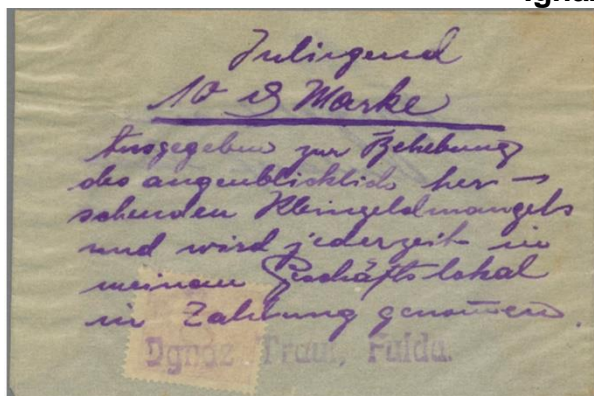 Inliegend
10 ₰ Marke
Ausgegeben zur Behebung
des augenblicklich her-
schenden Kleingeldmangels
und wird jederzeit in
meinem Geschäftslokal
in Zahlung genommen.
Ignaz Traut, Fulda.